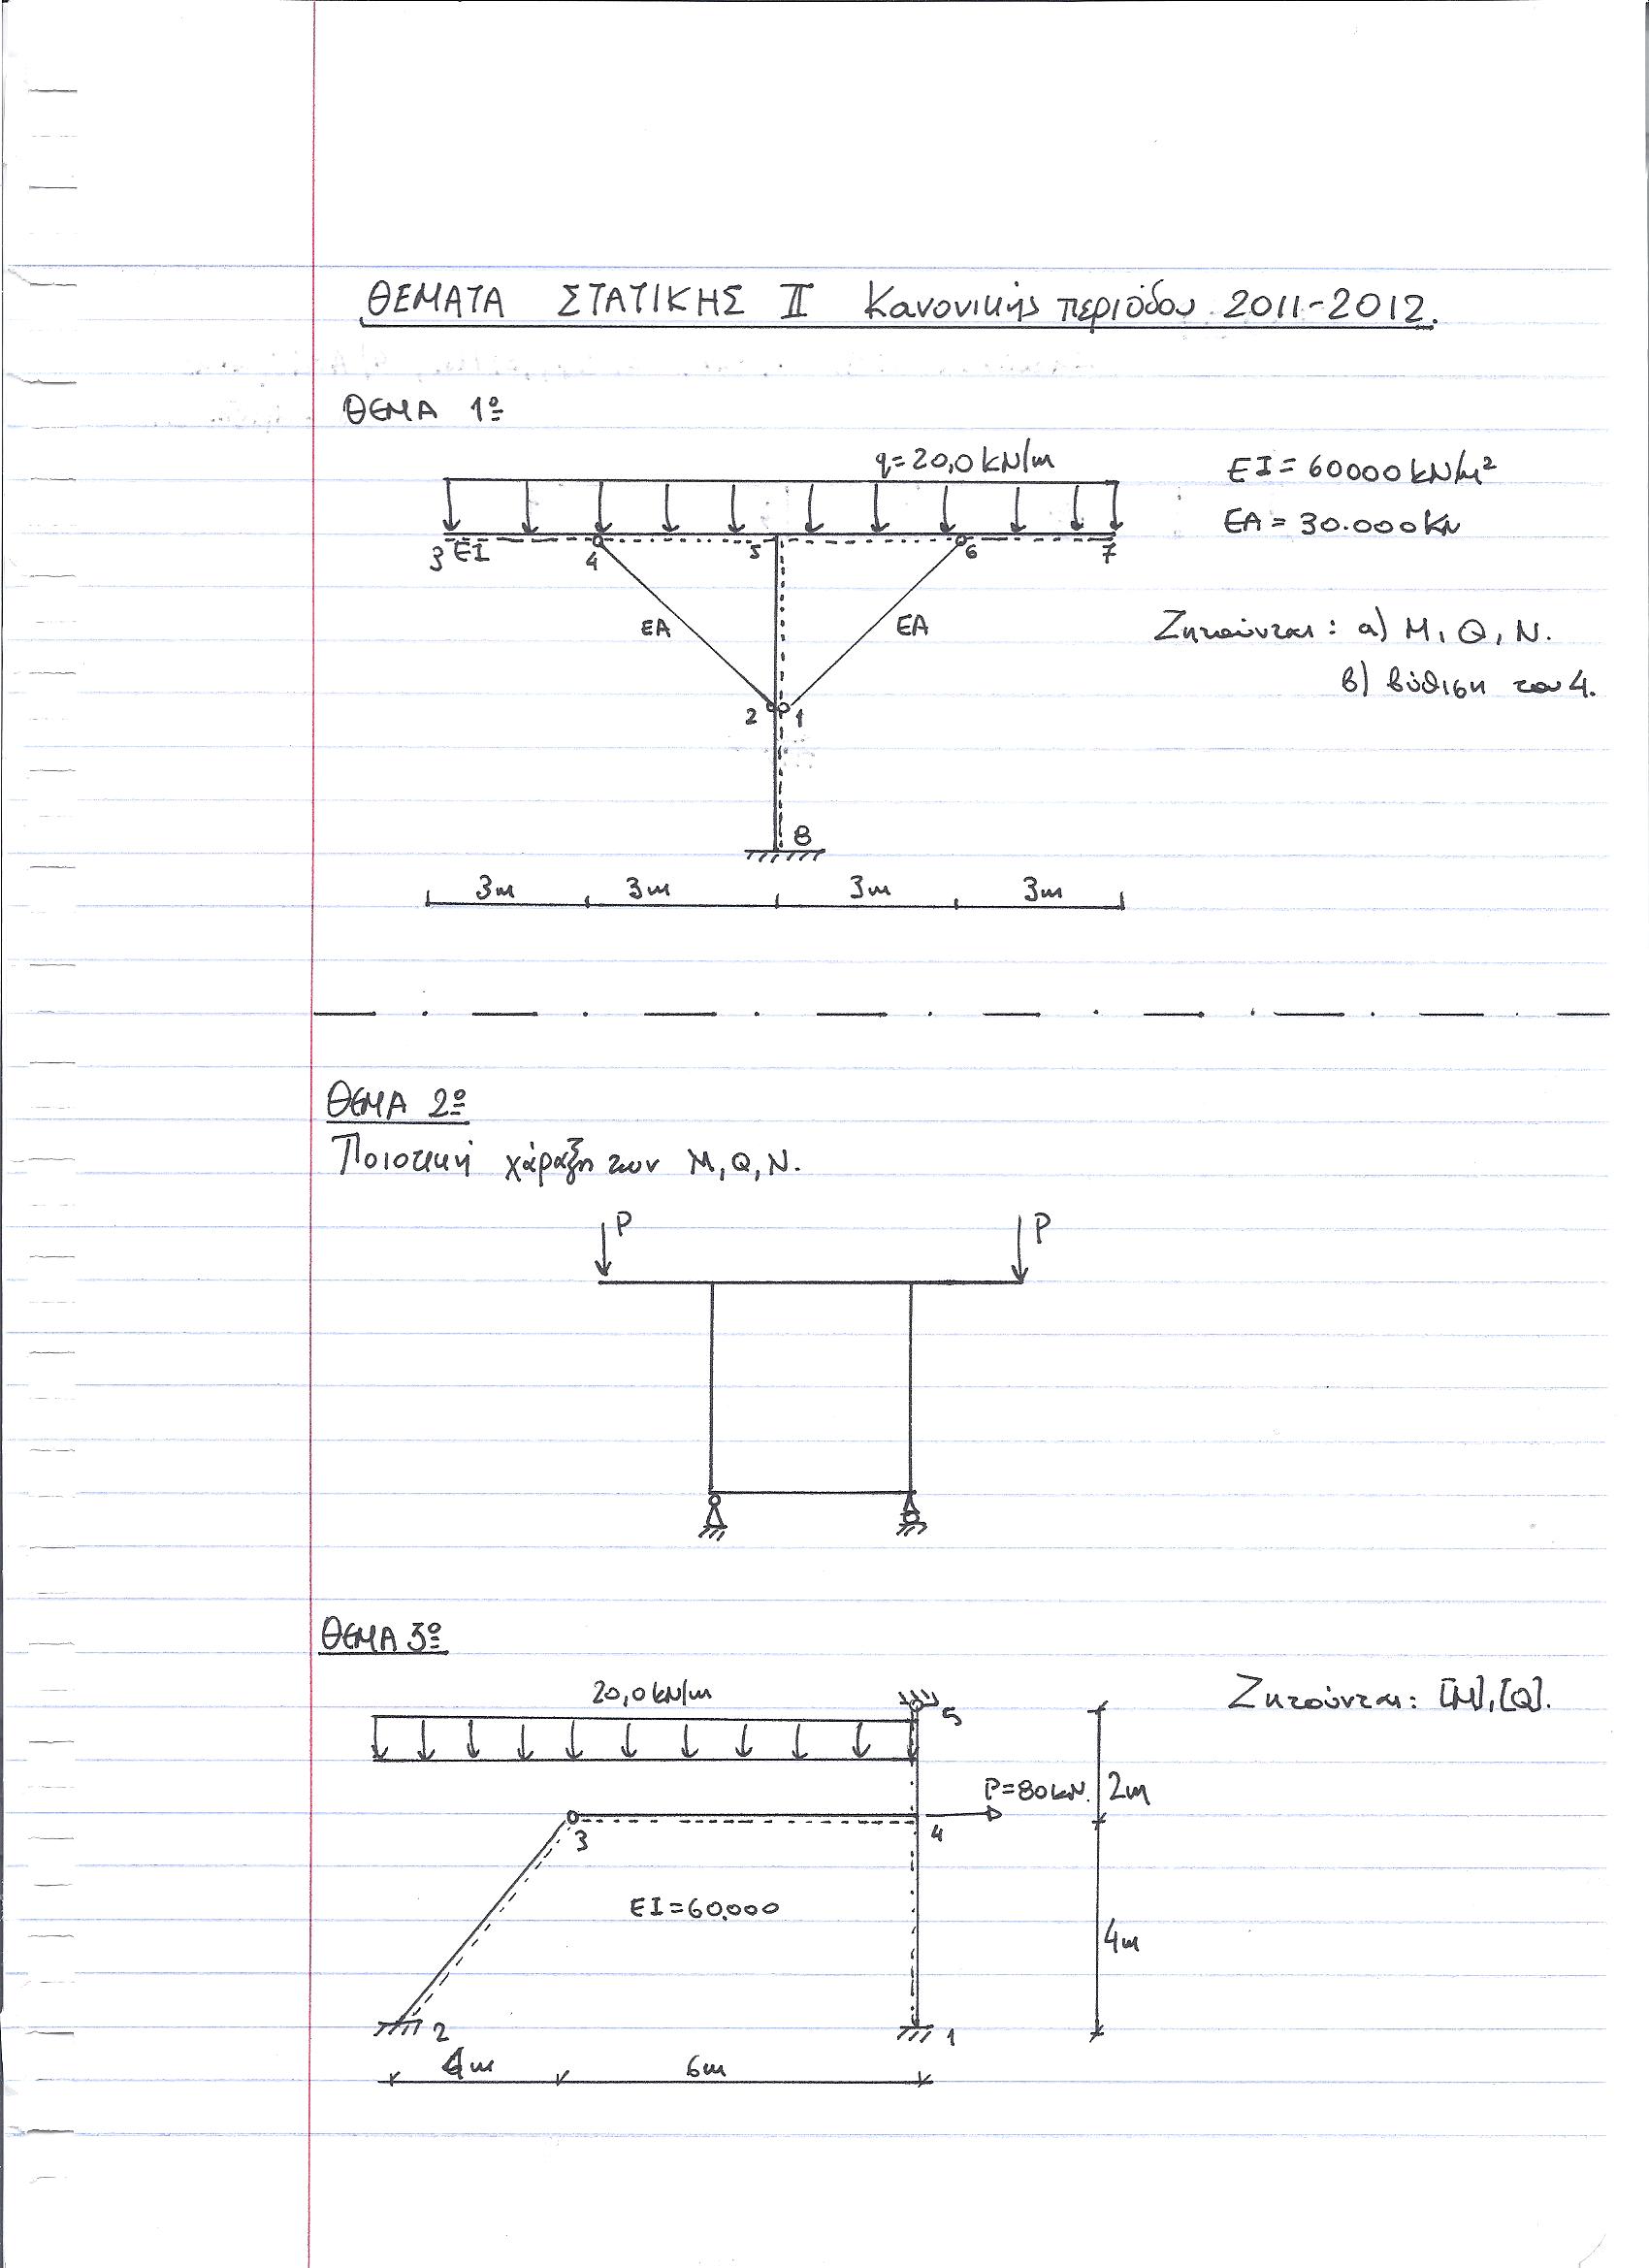 ΘΕΜΑΤΑ ΣΤΑΤΙΚΗΣ II Κανονικής περιόδου 2011-2012.
ΘΕΜΑ 1º
q=20,0 kN/m
EI = 60000 kN/m²
EA = 30.000 kN
3 EI 4 5 6 7
EA EA
Ζητούνται: α) M, Q, N.
β) βύθιση του 4.
2 1
8
3m 3m 3m 3m
ΘΕΜΑ 2º
Ποιοτική χάραξη των M, Q, N.
P P
ΘΕΜΑ 3º
20,0 kN/m
Ζητούνται: [M], [Q].
5
P=80kN. 2m
3 4
EI=60.000
4m
2 1
4m 6m